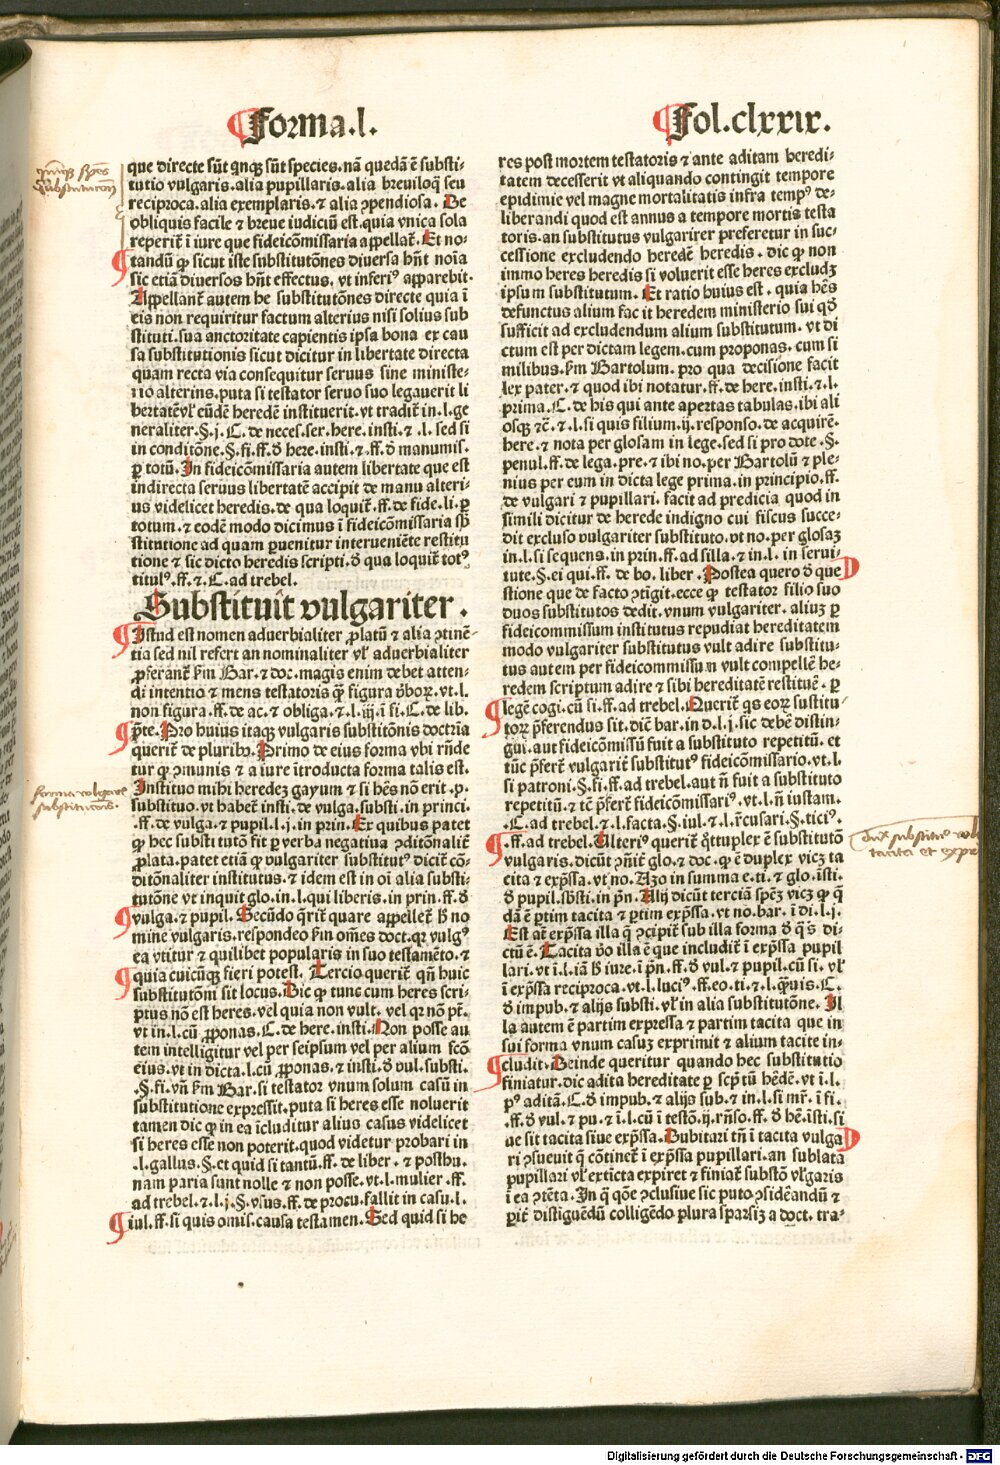 Forma.l.
Fol.clxxix.
que directe sũt qnqꝫ sũt species.nã quedã ẽ substi-
tutio vulgaris.alia pupillaris.alia breuiloqꝫ seu
reciproca.alia exemplaris.⁊ alia ꝯpendiosa. De
obliquis facile ⁊ breue iudiciũ est.quia vnica sola
reperit̃ ĩ iure que fideicõmissaria appellat̃.Et no-
tandũ ꝙ sicut iste substitutõnes diuersa hñt noĩa
sic etiã diuersos hñt effectus. vt inferiꝰ apparebit.
Appellant̃ autem he substitutõnes directe quia ĩ
eis non requiritur factum alterius nisi solius sub
stituti.sua auctoritate capientis ipsa bona ex cau
sa substitutionis sicut dicitur in libertate directa
quam recta via consequitur seruus sine ministe-
rio alterius.puta si testator seruo suo legauerit li
bertatẽ vł eũdẽ heredẽ instituerit.vt tradit̃ in.l.ge
neraliter.§.j.C.de neces.ser.here.insti.⁊.l.sed si
in conditõne.§.fi.ff.ð here.insti.⁊.ff.ð manumis.
ꝑ totũ.In fideicõmissaria autem libertate que est
indirecta seruus libertatẽ accipit de manu alteri-
us videlicet heredis.de qua loquit̃.ff.de fide.li.ꝑ
totum.⁊ eodẽ modo dicimus ĩ fideicõmissaria sb̃
stitutione ad quam ꝑuenitur interueniẽte restitu
tione ⁊ sic dicto heredis scripti.ð qua loquit̃ totꝰ
titulꝰ.ff.⁊.C.ad trebel.
Substituit vulgariter.
Istud est nomen aduerbialiter ꝓlatũ ⁊ alia ꝯtinẽ-
tia sed nil refert an nominaliter vł aduerbialiter
ꝓferant̃ fm̃ Bar.⁊ doc.magis enim debet atten-
di intentio ⁊ mens testatoris q̃ꝫ figura ṽboꝝ.vt.l.
non figura.ff.de ac.⁊ obliga.⁊.l.iij.ĩ fi.C.de lib.
p̃te.Pro huius itaqꝫ vulgaris substitõnis doctrĩa
querit̃ de pluribꝰ.Primo de eius forma vbi rñde
tur ꝙ ꝯmunis ⁊ a iure ĩtroducta forma talis est.
Instituo mihi heredeꝫ gayum ⁊ si hẽs nõ erit.p.
substituo.vt habet̃ insti.de vulga.substi.in princi
.ff.de vulga.⁊ pupil.l.j.in prin.Ex quibus patet
ꝙ hec substitutõ fit ꝑ verba negatiua ꝯditõnalit̃
ꝓlata.patet etiã ꝙ vulgariter substitutꝰ dicit̃ cõ-
ditõnaliter institutus.⁊ idem est in oĩ alia substi-
tutõne vt inquit glo.in.l.qui liberis.in prin.ff.ð
vulga.⁊ pupil.Secũdo q̃rit̃ quare appellet̃ ħ no
mine vulgaris.respondeo fm̃ om̃es doct.qꝛ vulgꝰ
ea vtitur ⁊ quilibet popularis in suo testamẽto.⁊
quia cuicũqꝫ fieri potest.Tercio querit̃ qñ huic
substitutõni sit locus.Dic ꝙ tunc cum heres scri-
ptus nõ est heres.vel quia non vult.vel qꝛ nõ pt̃.
vt ĩn.l.cũ ꝓponas.C.de here.insti.Non posse au
tem intelligitur vel per seipsum vel per alium fcõ
eius.vt in dicta.l.cũ ꝓponas.⁊ insti.ð vul.substi.
.§.fi.vñ fm̃ Bar.si testator vnum solum casũ in
substitutione expressit.puta si heres esse noluerit
tamen dic ꝙ in ea ĩcluditur alius casus videlicet
si heres esse non poterit.quod videtur probari in
.l.gallus.§.et quid si tantũ.ff.de liber.⁊ posthu.
nam paria sunt nolle ⁊ non posse.vt.l.mulier.ff.
ad trebel.⁊.l.j.§.vsus.ff.de procu.fallit in casu.l.
iul.ff.si quis omis.causa testamen.Sed quid si he
res post mortem testatoris ⁊ ante aditam heredi-
tatem decesserit vt aliquando contingit tempore
epidimie vel magne mortalitatis infra tempꝰ de-
liberandi quod est annus a tempore mortis testa
toris.an substitutus vulgariter preferetur in suc-
cessione excludendo heredẽ heredis.dic ꝙ non
immo heres heredis si voluerit esse heres excludꝫ
ipsum substitutum.Et ratio huius est.quia hẽs
defunctus alium facit heredem ministerio sui qð
sufficit ad excludendum alium substitutum.vt di
ctum est per dictam legem.cum proponas.cum si
milibus.fm̃ Bartolum.pro qua decisione facit
lex pater.⁊ quod ibi notatur.ff.de here.insti.⁊.l.
prima.C.de his qui ante apertas tabulas.ibi ali
osqꝫ ⁊c̃.⁊.l.si quis filium.ij.responso.de acquirẽ.
here.⁊ nota per glosam in lege.sed si pro dote.§.
penul.ff.de lega.pre.⁊ ibi no.per Bartolũ ⁊ ple-
nius per eum in dicta lege prima.in principio.ff.
de vulgari ⁊ pupillari.facit ad predicta quod in
simili dicitur de herede indigno cui fiscus succe-
dit excluso vulgariter substituto.vt no.per glosaꝫ
in.l.si sequens.in prin.ff.ad silla.⁊ in.l.in serui-
tute.§.ei qui.ff.de bo.liber.Postea quero ð que
stione que de facto ꝯtigit.ecce ꝙ testator filio suo
duos substitutos dedit.vnum vulgariter.aliuꝫ ꝑ
fideicommissum institutus repudiat hereditatem
modo vulgariter substitutus vult adire substitu-
tus autem per fideicommissum vult compellẽ he-
redem scriptum adire ⁊ sibi hereditatẽ restituẽ.ꝑ
legẽ cogi.cũ si.ff.ad trebel.Querit̃ qs eoꝝ sustitu-
toꝝ p̃ferendus sit.dicũ bar.in d.l.j.sic debẽ distin-
gui.aut fideicõmissũ fuit a substituto repetitũ.et
tũc p̃fert̃ vulgarit̃ substitutꝰ fideicõmissario.vt.l.
si patroni.§.fi.ff.ad trebel.aut ñ fuit a substituto
repetitũ.⁊ tẽ p̃fert̃ fideicõmissariꝰ.vt.l.ñ iustam.
.C.ad trebel.⁊.l.facta.§.iul.⁊.l.r̃cusari.§.ticiꝰ.
.ff.ad trebel.Ulteriꝰ querit̃ q̃tupler ẽ substitutõ
vulgaris.dicũt ꝯñit̃ glo.⁊ doc.ꝙ ẽ duplex vicꝫ ta
cita ⁊ exp̃ssa.vt no.Azo in summa e.ti.⁊ glo.ĩsti.
ð pupil.sbsti.in pñ.Alij dicũt terciã sp̃eꝫ vicꝫ ꝙ q̃
dã ẽ ꝑtim tacita ⁊ ꝑtim exp̃ssa.vt no.bar.ĩ di.l.j.
Est at̃ exp̃ssa illa q̃ ꝯcipit̃ sub illa forma ð q̃ s̃ di-
ctũ ẽ.Tacita ṽo illa ẽ que includit̃ ĩ exp̃ssa pupil
lari.vt ĩ.l.iã ħ iure.ĩ pñ.ff.ð vul.⁊ pupil.cũ si.vł
ĩ exp̃ssa reciproca.vt.l.luciꝰ.ff.eo.ti.⁊.l.q̃uis.C.
ð impub.⁊ alijs substi.vł in alia substitutõne.Il
la autem ẽ partim expressa ⁊ partim tacita que in
sui forma vnum casuꝫ exprimit ⁊ alium tacite in-
cludit.Deinde queritur quando hec substitutio
finiatur.dic adita hereditate ꝑ scp̃tũ hẽdẽ.vt ĩ.l.
pꝰ aditã.C.ð impub.⁊ alijs sub.⁊ in.l.si mr̃.ĩ fi.
.ff.ð vul.⁊ pu.⁊ ĩ.l.cũ ĩ testõ.ij.rñso.ff.ð hẽ.ĩsti.si
ue sit tacita siue exp̃ssa.Dubitari tñ ĩ tacita vulga
ri ꝯsueuit q̃ cõtinet̃ ĩ exp̃ssa pupillari.an sublata
pupillari vł extĩcta expiret ⁊ finiat̃ substõ vłgaris
ĩ ea ꝯtẽta.In q̃ qõe ꝯclusiue sic puto ꝯsidẽandũ ⁊
ꝑit̃ distiguẽdũ colligẽdo plura sparsiꝫ a doct.tra-
forma vulgare
substitucõis.
Digitalisierung gefördert durch die Deutsche Forschungsgemeinschaft - DFG